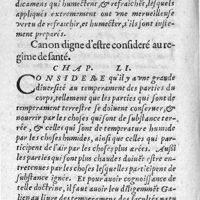 dicamens qui humectent, & refraichir, lesquels
appliqués exterement ont vne merueilleuse
vertu de refraichir, et humecter, s'ils sont iustement
preparés.
Canon digne d'estre consideré au regime
de santé.
CHAP. LI.
CONSIDERE qu'il y a vne grande
diuersité au temperament des parties du
corps, tellement que les parties qui sont de
temperament terrestre se doiuent conseruer, &
nourrir de choses qui sont de substance terrestre,
& celles qui sont de temperature humide
par des choses humides, ainsi que celles qui participent
de l'air par choses plus aërées. Aussi
les parties qui sont plus chaudes doiuët estre entretenues
par choses lesquelles participent de
substance ignée. Et pour auoir cognoissance de
telle doctrine, il faut auoir leu diligemmēt Galien
au liure des temperamens des facultés natu